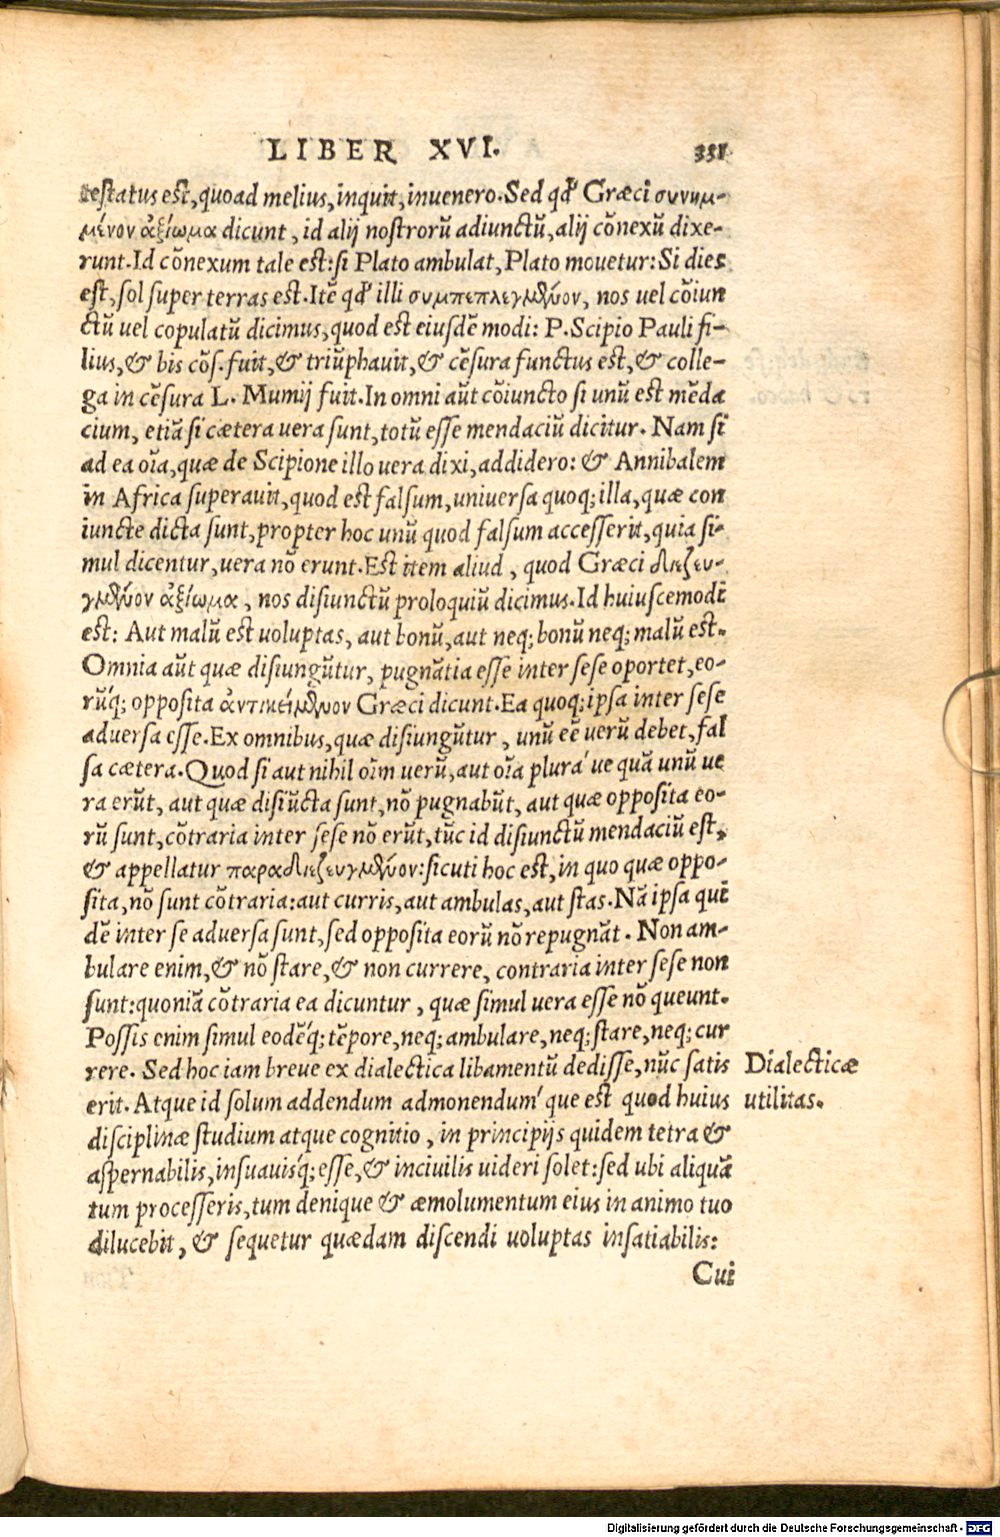 LIBER XVI. 331
testatus est, quoad melius, inquit, inuenero. Sed qđ Græci συνημ-
μένον ἀξίωμα dicunt, id alij nostrorũ adiunctũ, alij cõnexũ dixe-
runt. Id cõnexum tale est: si Plato ambulat, Plato mouetur: Si dies
est, sol super terras est. Itẽ qđ illi συμπεπλεγμένον, nos uel cõiun
ctũ uel copulatũ dicimus, quod est eiusdẽ modi: P. Scipio Pauli fi-
lius, & bis cõs. fuit, & triũphauit, & cẽsura functus est, & colle-
ga in cẽsura L. Mumij fuit. In omni aũt cõiuncto si unũ est mẽda
cium, etiã si cætera uera sunt, totũ esse mendaciũ dicitur. Nam si
ad ea oĩa, quæ de Scipione illo uera dixi, addidero: & Annibalem
in Africa superauit, quod est falsum, uniuersa quoq; illa, quæ con
iuncte dicta sunt, propter hoc unũ quod falsum accesserit, quia si-
mul dicentur, uera nõ erunt. Est item aliud, quod Græci διεζευ-
γμένον ἀξίωμα, nos disiunctũ proloquiũ dicimus. Id huiuscemodi
est: Aut malũ est uoluptas, aut bonũ, aut neq; bonũ neq; malũ est.
Omnia aũt quæ disiungũtur, pugnãtia esse inter sese oportet, eo-
rũq́; opposita ἀντικείμενον Græci dicunt. Ea quoq; ipsa inter sese
aduersa esse. Ex omnibus, quæ disiungũtur, unũ eẽ uerũ debet, fal
sa cætera. Quod si aut nihil oĩm uerũ, aut oĩa plurá ue quã unũ ue
ra erũt, aut quæ disiũcta sunt, nõ pugnabũt, aut quæ opposita eo-
rũ sunt, cõtraria inter sese nõ erũt, tũc id disiunctũ mendaciũ est,
& appellatur παραδιεζευγμένον: sicuti hoc est, in quo quæ oppo-
sita, nõ sunt cõtraria: aut curris, aut ambulas, aut stas. Nã ipsa qui
dẽ inter se aduersa sunt, sed opposita eorũ nõ repugnãt. Non am-
bulare enim, & nõ stare, & non currere, contraria inter sese non
sunt: quoniã cõtraria ea dicuntur, quæ simul uera esse nõ queunt.
Possis enim simul eodẽq́; tẽpore, neq; ambulare, neq; stare, neq; cur
rere. Sed hoc iam breue ex dialectica libamentũ dedisse, nũc satis
erit. Atque id solum addendum admonendum´ que est quod huius
disciplinæ studium atque cognitio, in principijs quidem tetra &
aspernabilis, insuauisq́; esse, & inciuilis uideri solet: sed ubi aliquã
tum processeris, tum denique & æmolumentum eius in animo tuo
dilucebit, & sequetur quædam discendi uoluptas insatiabilis:
Cui
Dialecticæ
utilitas.
Digitalisierung gefördert durch die Deutsche Forschungsgemeinschaft - DFG